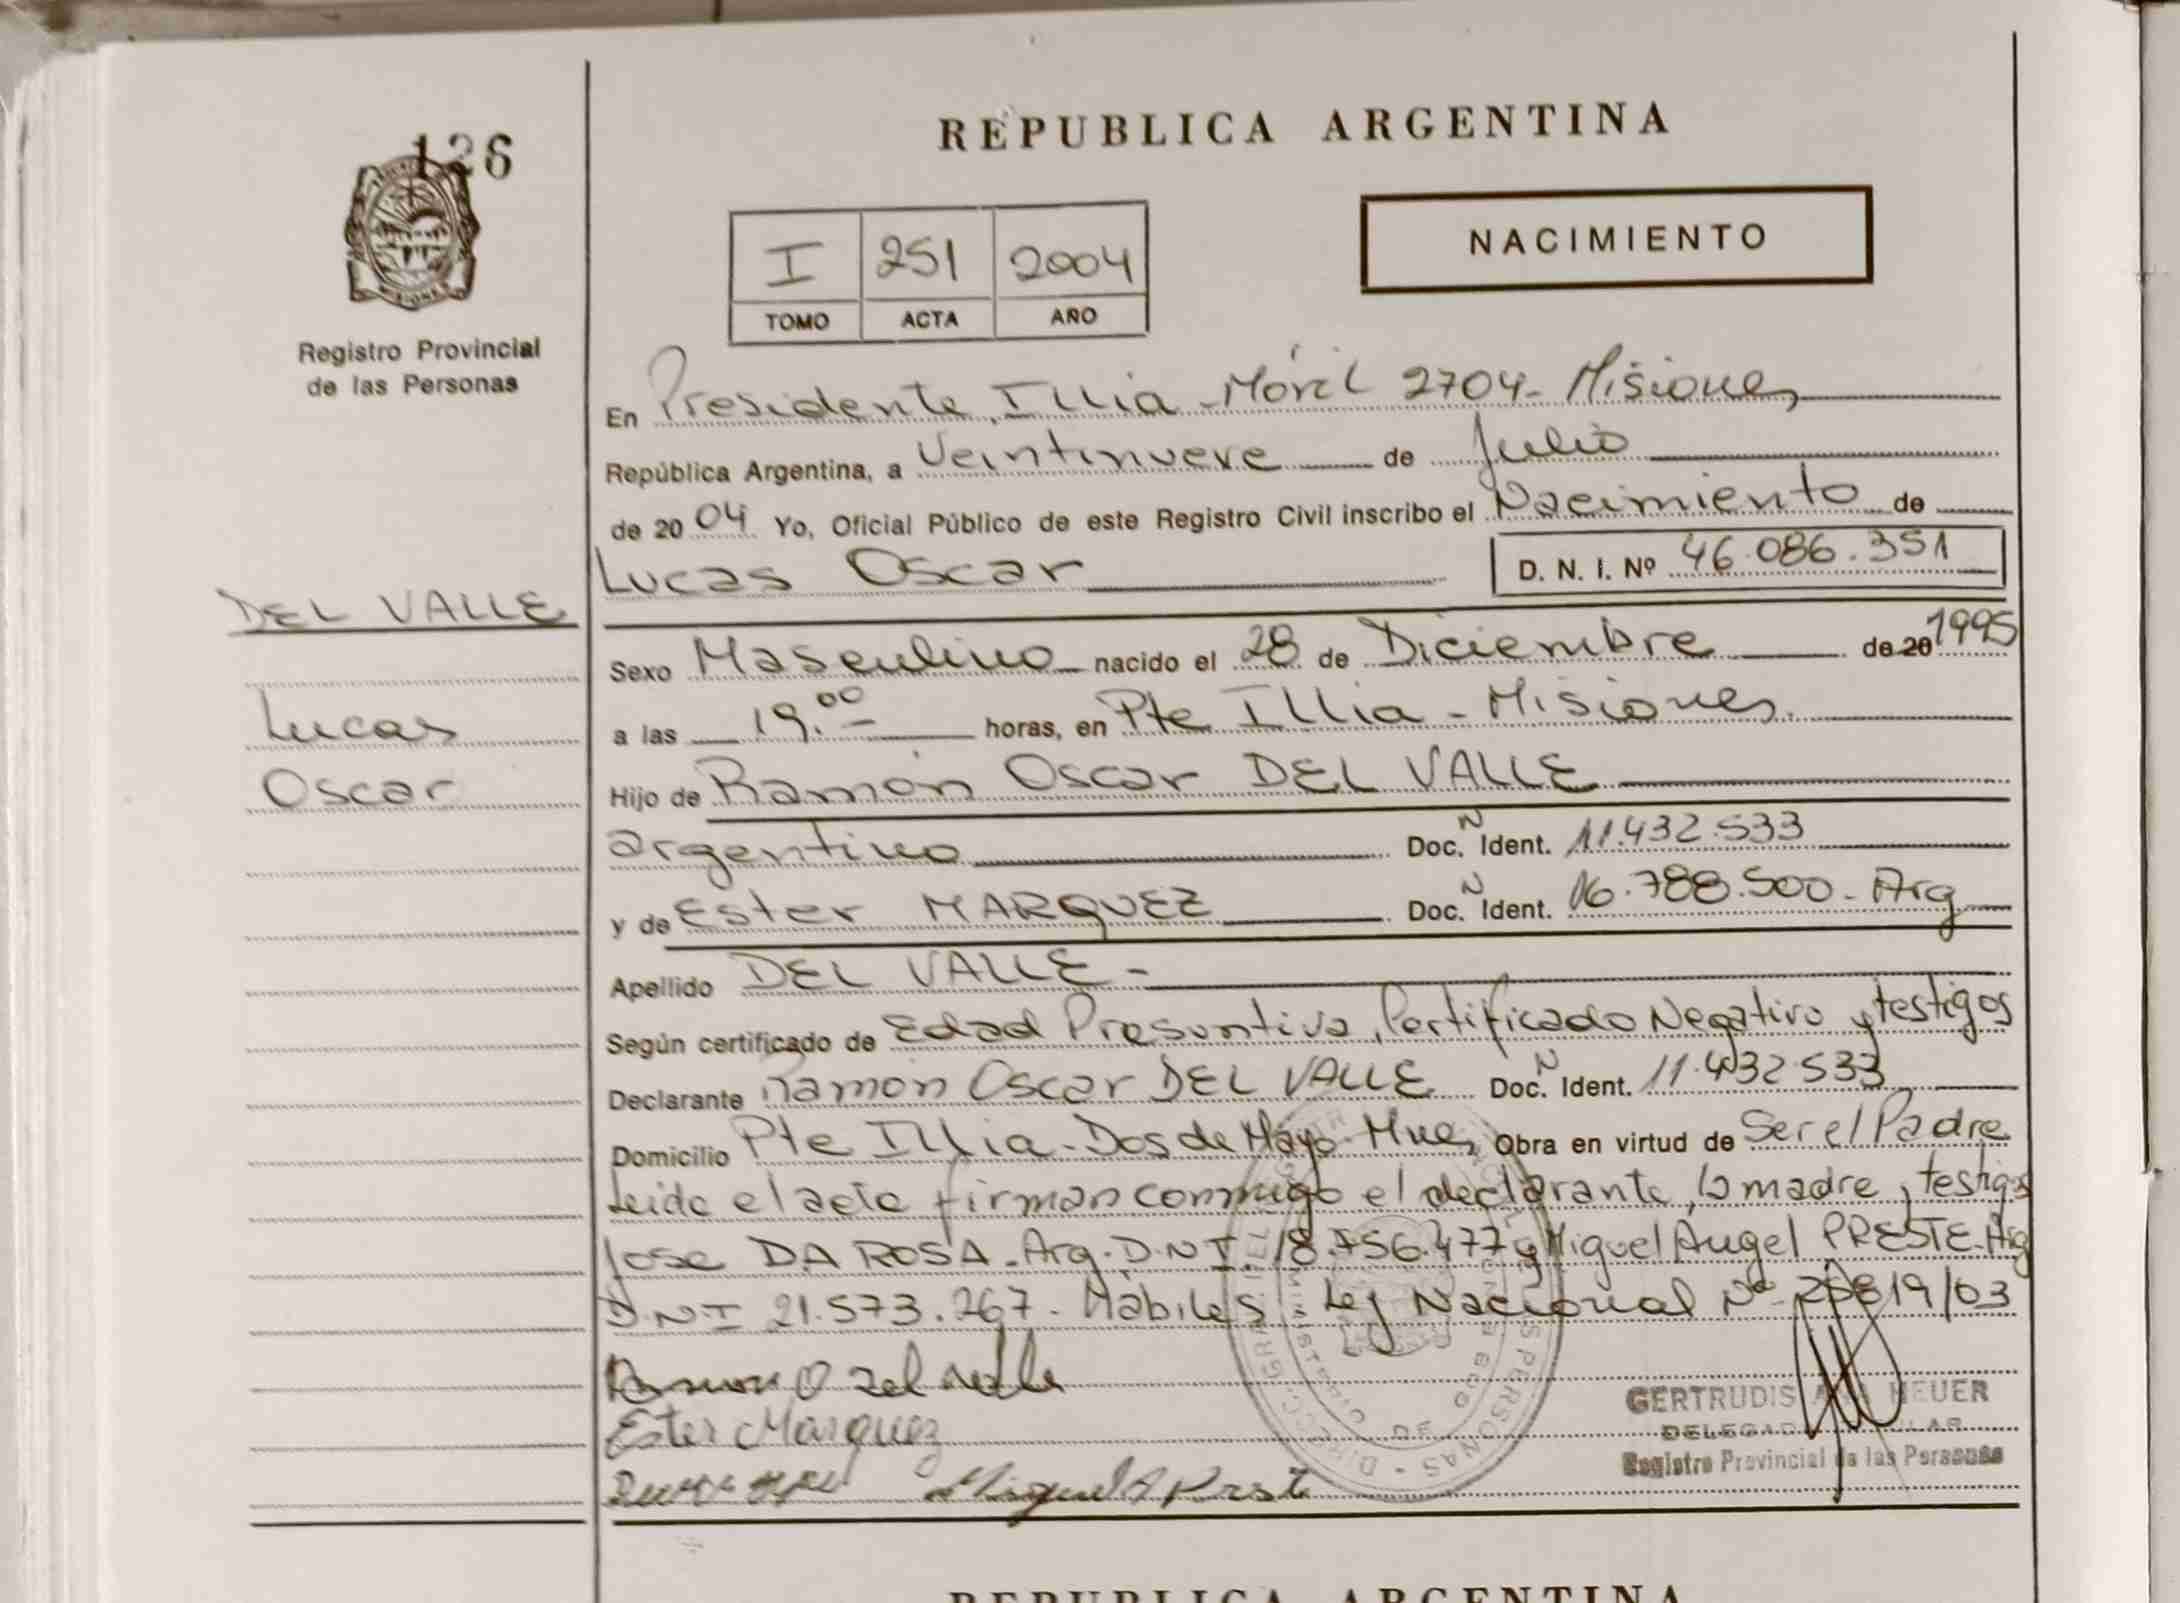 126
REPUBLICA ARGENTINA
NACIMIENTO
I 251 2004
TOMO ACTA AÑO
MISIONES
Registro Provincial
de las Personas
En Presidente Illia - Móvil 2704 - Misiones
República Argentina, a Veintinueve de Julio
de 2004 Yo, Oficial Público de este Registro Civil inscribo el Nacimiento de
Lucas Oscar D. N. I. Nº 46.086.351
DEL VALLE
Lucas
Oscar
Sexo Masculino nacido el 28 de Diciembre de 20 1995
a las 19.00 horas, en Pte Illia - Misiones.
Hijo de Ramón Oscar DEL VALLE
argentino Doc. N Ident. 11.432.533
y de Ester MARQUEZ Doc. N Ident. 16.788.500 - Arg
Apellido DEL VALLE -
Según certificado de Edad Presuntiva, Certificado Negativo y testigos
Declarante Ramón Oscar DEL VALLE Doc. N Ident. 11.432.533
Domicilio Pte Illia - Dos de Mayo - Mnes Obra en virtud de Ser el Padre
Leida el acta firman conmigo el declarante, la madre y testigos
Jose DA ROSA - Arg. D.N.I. 18.756.477 y Miguel Angel PRESTE - Arg
D.N.I 21.573.267 - Hábiles - Ley Nacional Nº 25819/03
Ramon O del valle
Ester Marquez
Miguel A Preste
GERTRUDIS HEUER
Registro Provincial de las Personas
REPUBLICA ARGENTINA